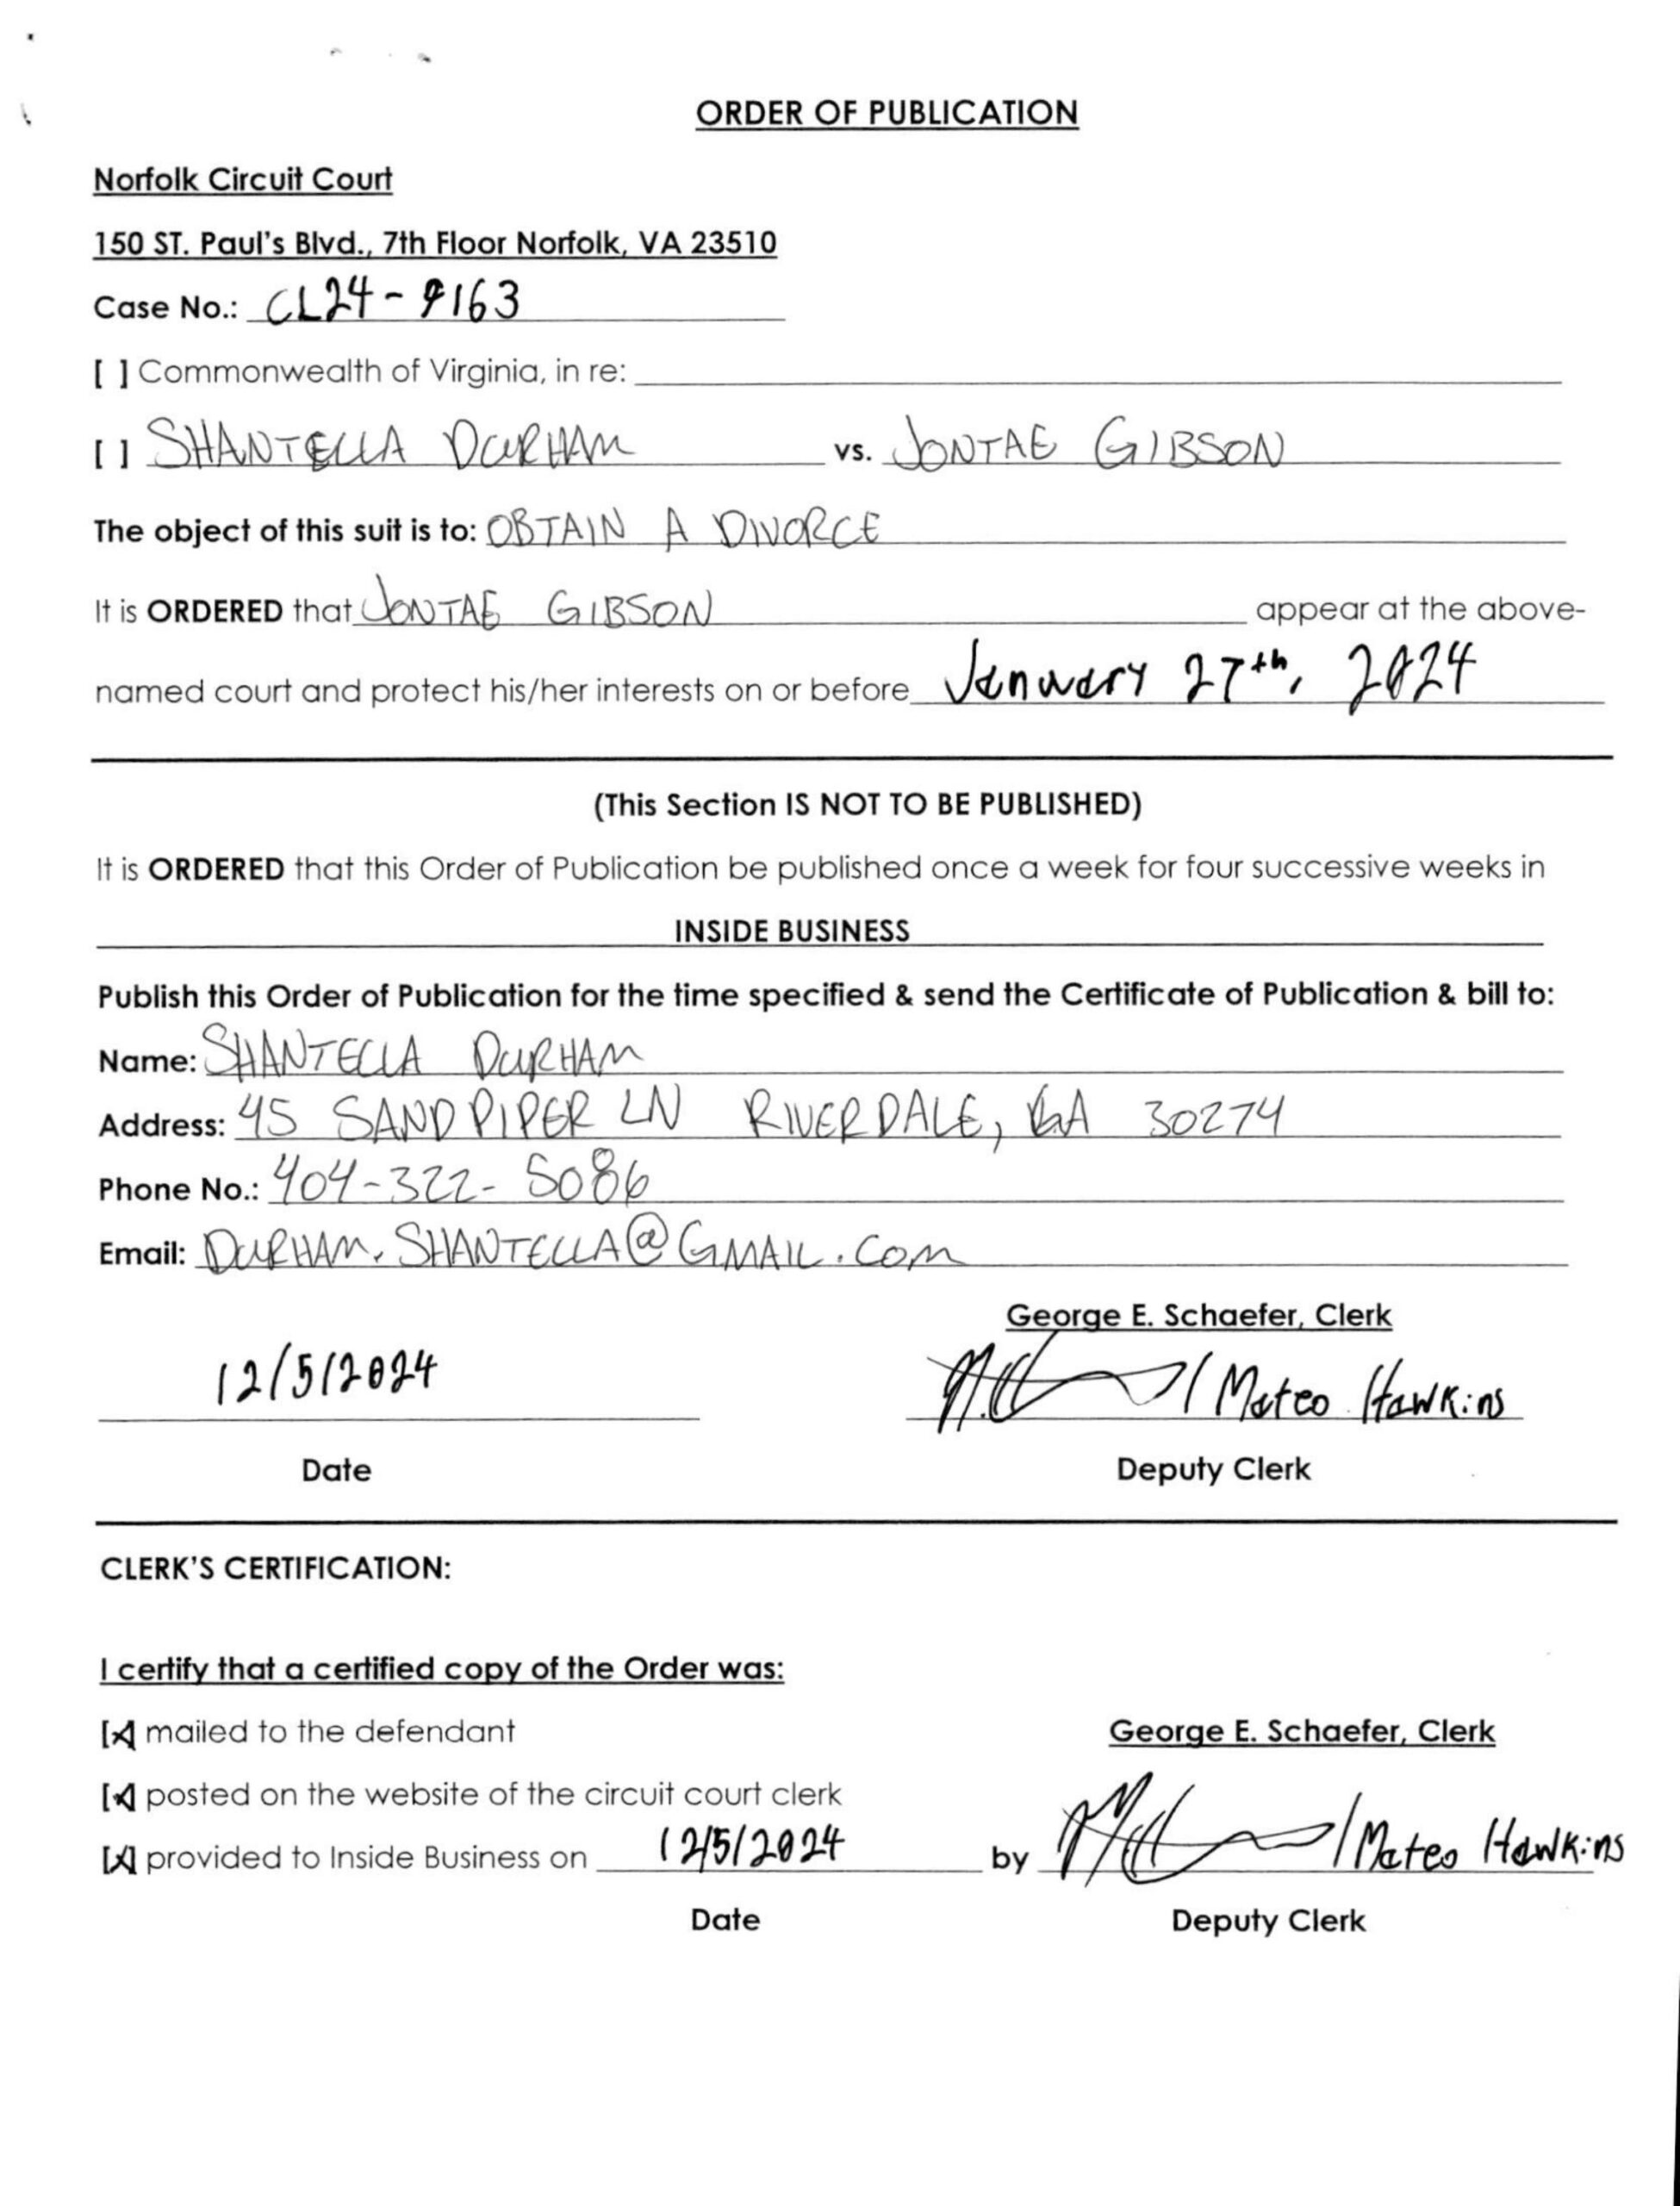 ORDER OF PUBLICATION
Norfolk Circuit Court
150 ST. Paul's Blvd., 7th Floor Norfolk, VA 23510
Case No.: CL24-9163
[ ] Commonwealth of Virginia, in re:
[ ] SHANTELLA DURHAM vs. JONTAE GIBSON
The object of this suit is to: OBTAIN A DIVORCE
It is ORDERED that JONTAE GIBSON appear at the above-
named court and protect his/her interests on or before January 27th, 2024
(This Section IS NOT TO BE PUBLISHED)
It is ORDERED that this Order of Publication be published once a week for four successive weeks in
INSIDE BUSINESS
Publish this Order of Publication for the time specified & send the Certificate of Publication & bill to:
Name: SHANTELLA DURHAM
Address: 45 SANDPIPER LN RIVERDALE, GA 30274
Phone No.: 404-322-5086
Email: DURHAM.SHANTELLA@GMAIL.COM
George E. Schaefer, Clerk
12/5/2024 / Mateo Hawkins
Date Deputy Clerk
CLERK'S CERTIFICATION:
I certify that a certified copy of the Order was:
[x] mailed to the defendant George E. Schaefer, Clerk
[x] posted on the website of the circuit court clerk
[x] provided to Inside Business on 12/5/2024 by / Mateo Hawkins
Date Deputy Clerk